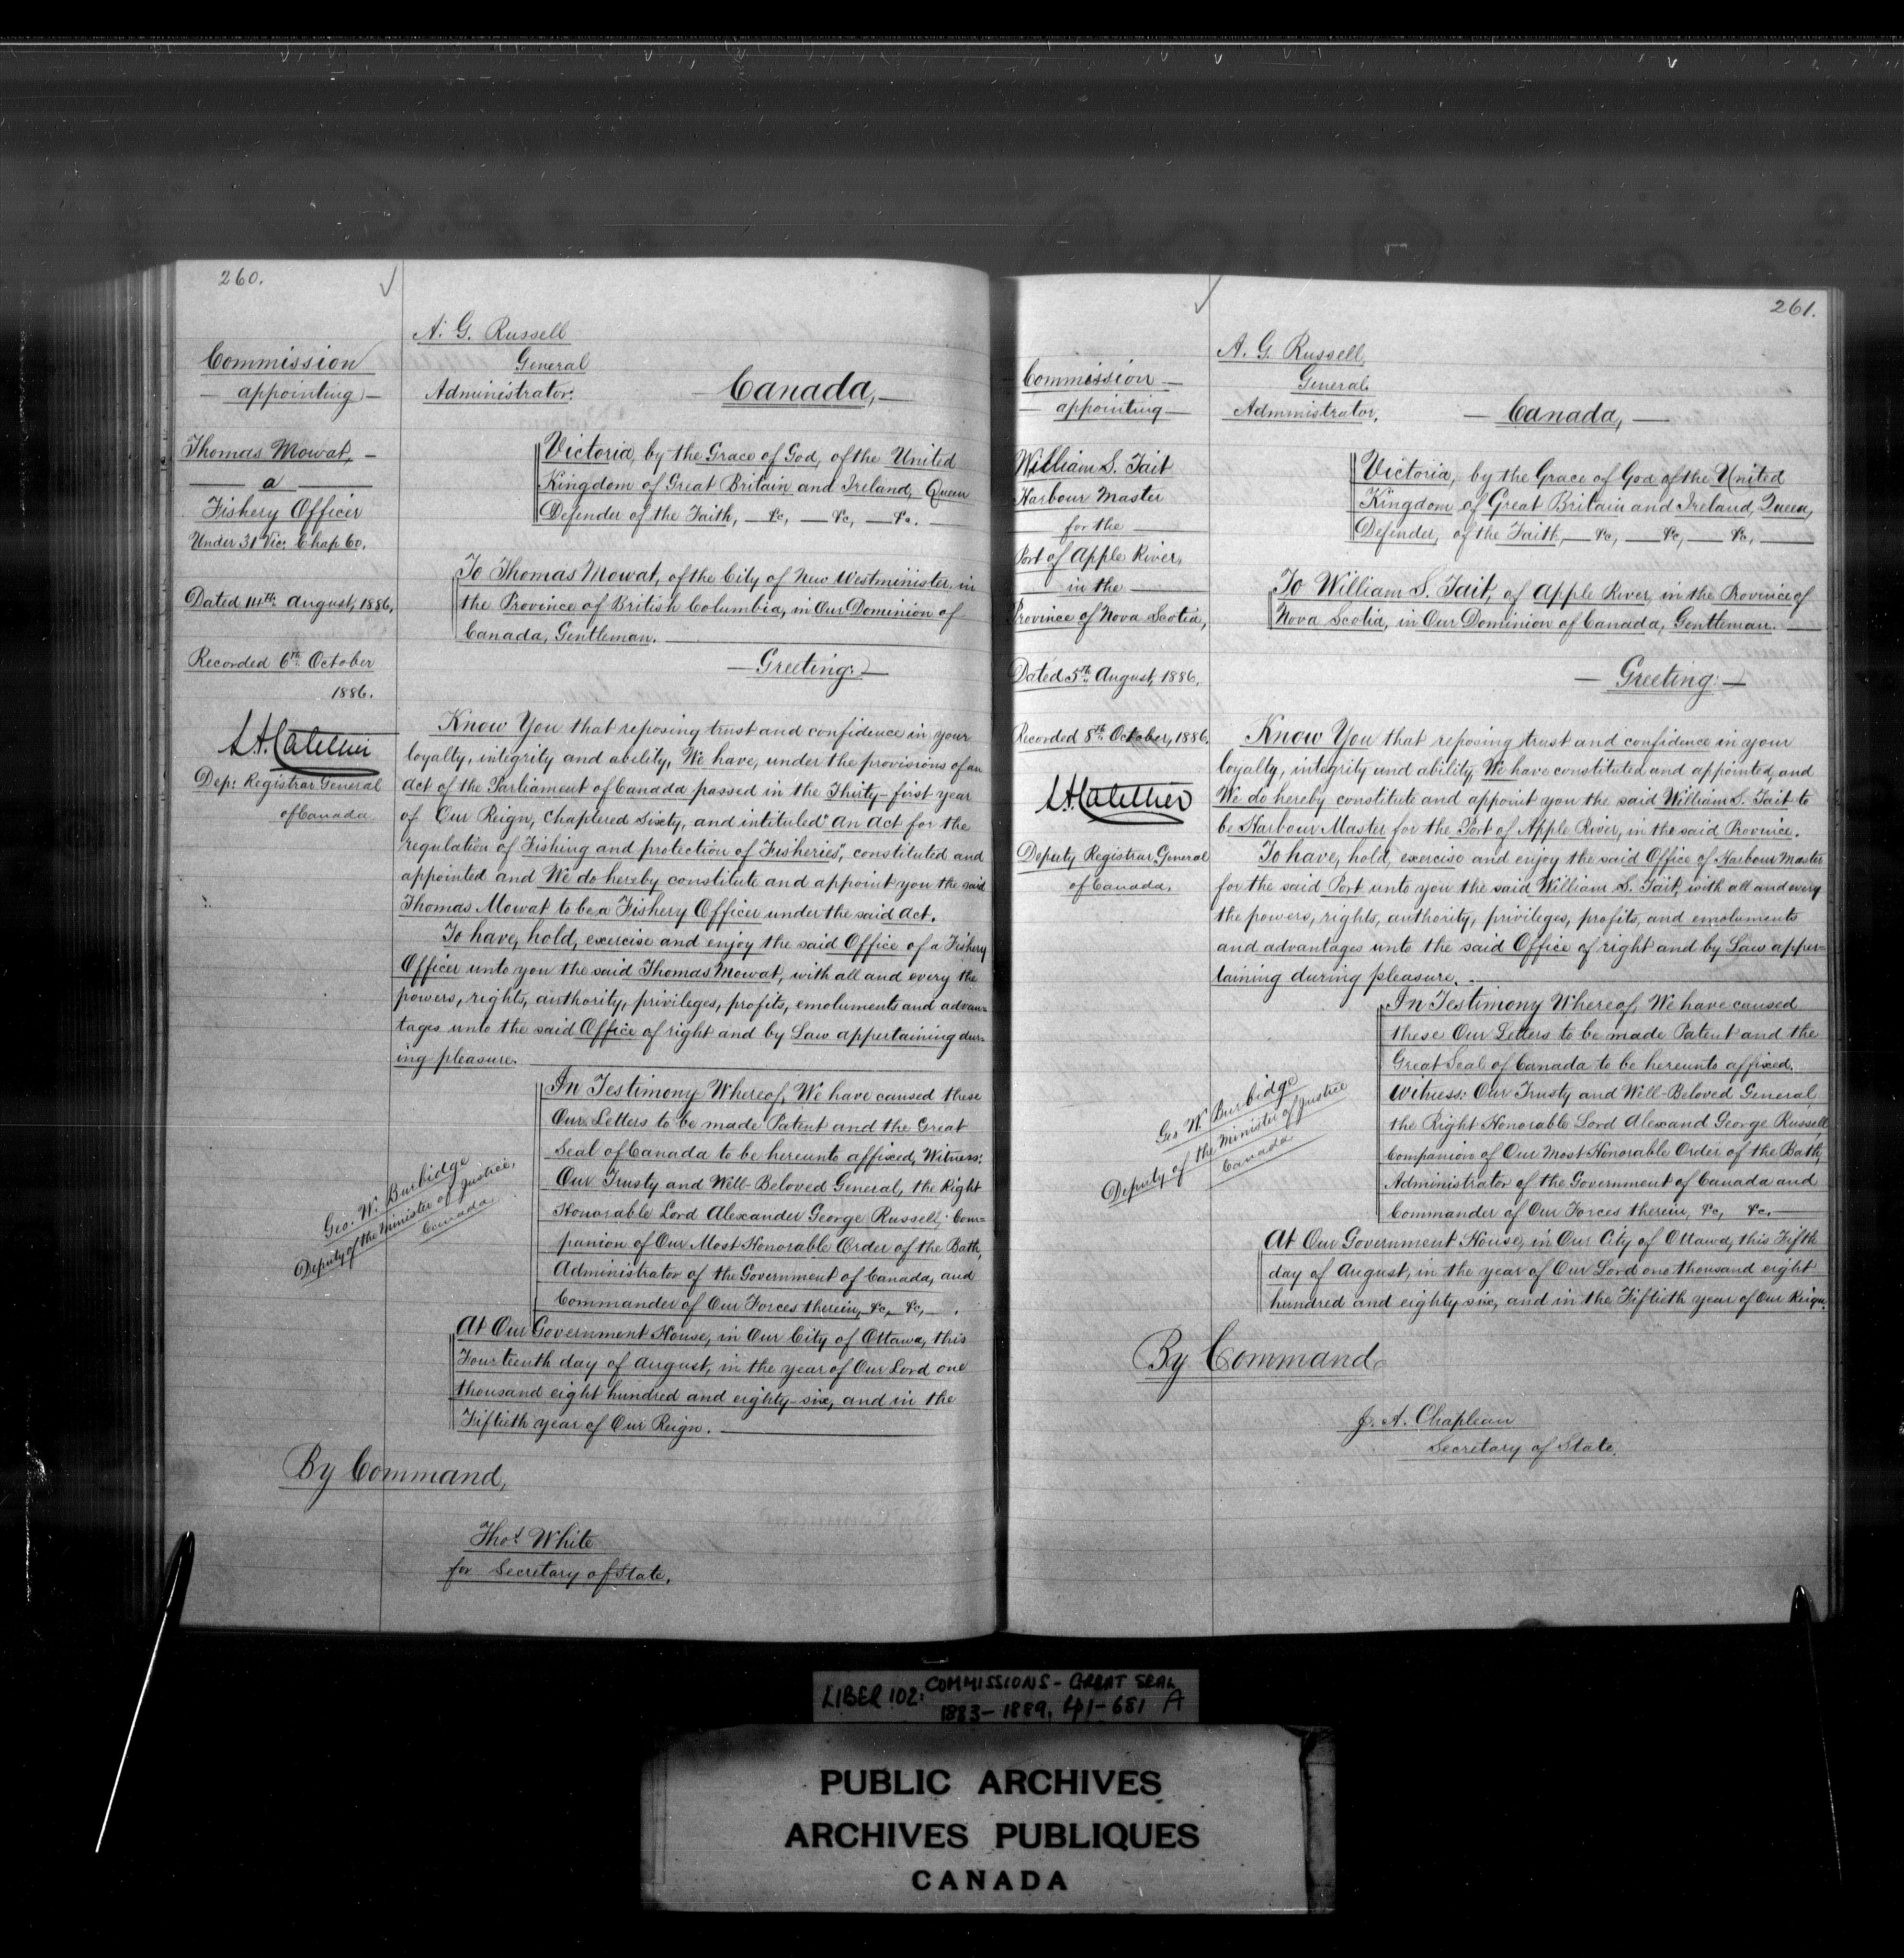 260.
Commission
appointing
Thomas Mowat,
a
Fishery Officer
Under 31 Vic: Chap 60.
Dated 14th August, 1886.
Recorded 6th October
1886.
Dep: Registrar General
of Canada
A. G. Russell
General
Administrator.
Canada,
Victoria, by the Grace of God, of the United
Kingdom of Great Britain and Ireland, Queen
Defender of the Faith, — &c, — &c, — &c. —
To Thomas Mowat, of the City of New Westminister, in
the Province of British Columbia, in Our Dominion of
Canada, Gentleman.
— Greeting: —
Know You that reposing trust and confidence in your
loyalty, integrity and ability, We have, under the provisions of an
Act of the Parliament of Canada passed in the Thirty-first year
of Our Reign, Chaptered Sixty, and intituled "An Act for the
"regulation of Fishing and protection of Fisheries", constituted and
appointed and We do hereby constitute and appoint you the said
Thomas Mowat to be a Fishery Officer under the said Act.
To have, hold, exercise and enjoy the said Office of a Fishery
Officer unto you the said Thomas Mowat, with all and every the
powers, rights, authority, privileges, profits, emoluments and advan=
tages unto the said Office of right and by Law appertaining dur=
ing pleasure.
In Testimony Whereof, We have caused these
Our Letters to be made Patent and the Great
Seal of Canada to be hereunto affixed, Witness:
Our Trusty and Well-Beloved General, the Right
Honorable Lord Alexander George Russell, Com=
panion of Our Most Honorable Order of the Bath,
Administrator of the Government of Canada, and
Commander of Our Forces therein, &c, &c, —
Geo. W. Burbidge
Deputy of the Minister of Justice,
Canada
At Our Government House, in Our City of Ottawa, this
Fourteenth day of August, in the year of Our Lord one
thousand eight hundred and eighty-six, and in the
Fiftieth year of Our Reign.
By Command,
Thos. White
for Secretary of State.
261.
Commission
appointing
William S. Tait
Harbour Master
for the
Port of Apple River,
in the
Province of Nova Scotia,
Dated 5th August, 1886.
Recorded 8th October, 1886.
Deputy Registrar General
of Canada.
A. G. Russell
General
Administrator.
— Canada, —
Victoria, by the Grace of God of the United
Kingdom of Great Britain and Ireland, Queen,
Defender, of the Faith, — &c, — &c, — &c,
To William S. Tait, of Apple River, in the Province of
Nova Scotia, in Our Dominion of Canada, Gentleman.
— Greeting: —
Know You that reposing trust and confidence in your
loyalty, integrity and ability, We have constituted and appointed, and
We do hereby constitute and appoint you the said William S. Tait to
be Harbour Master for the Port of Apple River, in the said Province.
To have, hold, exercise and enjoy the said Office of Harbour Master
for the said Port unto you the said William S. Tait, with all and every
the powers, rights, authority, privileges, profits, and emoluments
and advantages unto the said Office of right and by Law apper=
taining during pleasure.
In Testimony Whereof, We have caused
these Our Letters to be made Patent and the
Great Seal of Canada to be hereunto affixed.
Witness: Our Trusty and Well-Beloved General,
the Right Honorable Lord Alexand George Russell,
Companion of Our Most Honorable Order of the Bath,
Administrator of the Government of Canada and
Commander of Our Forces therein, &c, &c. —
Geo W. Burbidge
Deputy of the Minister of Justice
Canada
At Our Government House, in Our City of Ottawa, this Fifth
day of August, in the year of Our Lord one thousand eight
hundred and eighty-six, and in the Fiftieth year of Our Reign.
By Command
J. A. Chapleau
Secretary of State.
LIBER 102: COMMISSIONS - GREAT SEAL
1883-1889, 41-681 A
PUBLIC ARCHIVES
ARCHIVES PUBLIQUES
CANADA